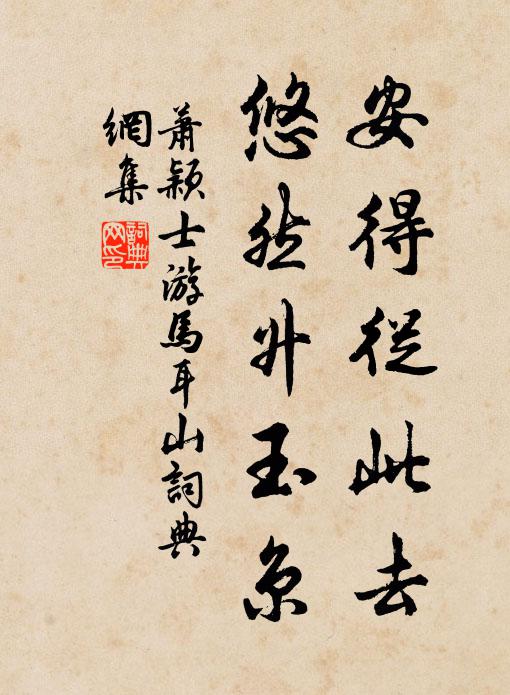 安得從此去
悠然升玉京
蕭穎士游馬耳山詞典
網集
詞典網印